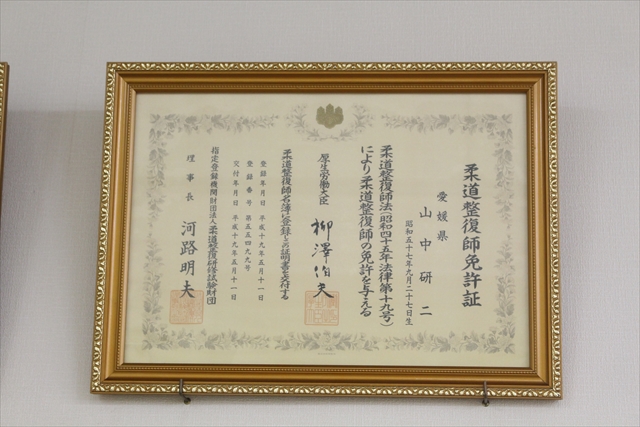 柔道整復師免許証
愛媛県
山中研二
昭和五十七年九月二十七日生
柔道整復師法(昭和四十五年法律第十九号)
により柔道整復師の免許を与える
厚生労働大臣 柳澤伯夫
柔道整復師名簿に登録しこの証明書を交付する
登録年月日 平成十九年五月十一日
登録番号 第五五四九九号
交付年月日 平成十九年五月十一日
指定登録機関財団法人柔道整復研修試験財団
理事長 河路明夫